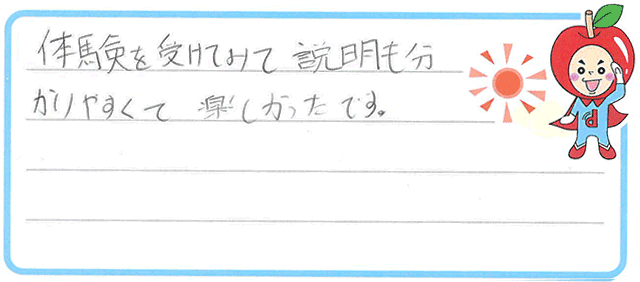 体験を受けてみて 説明も分
かりやすくて 楽しかったです。